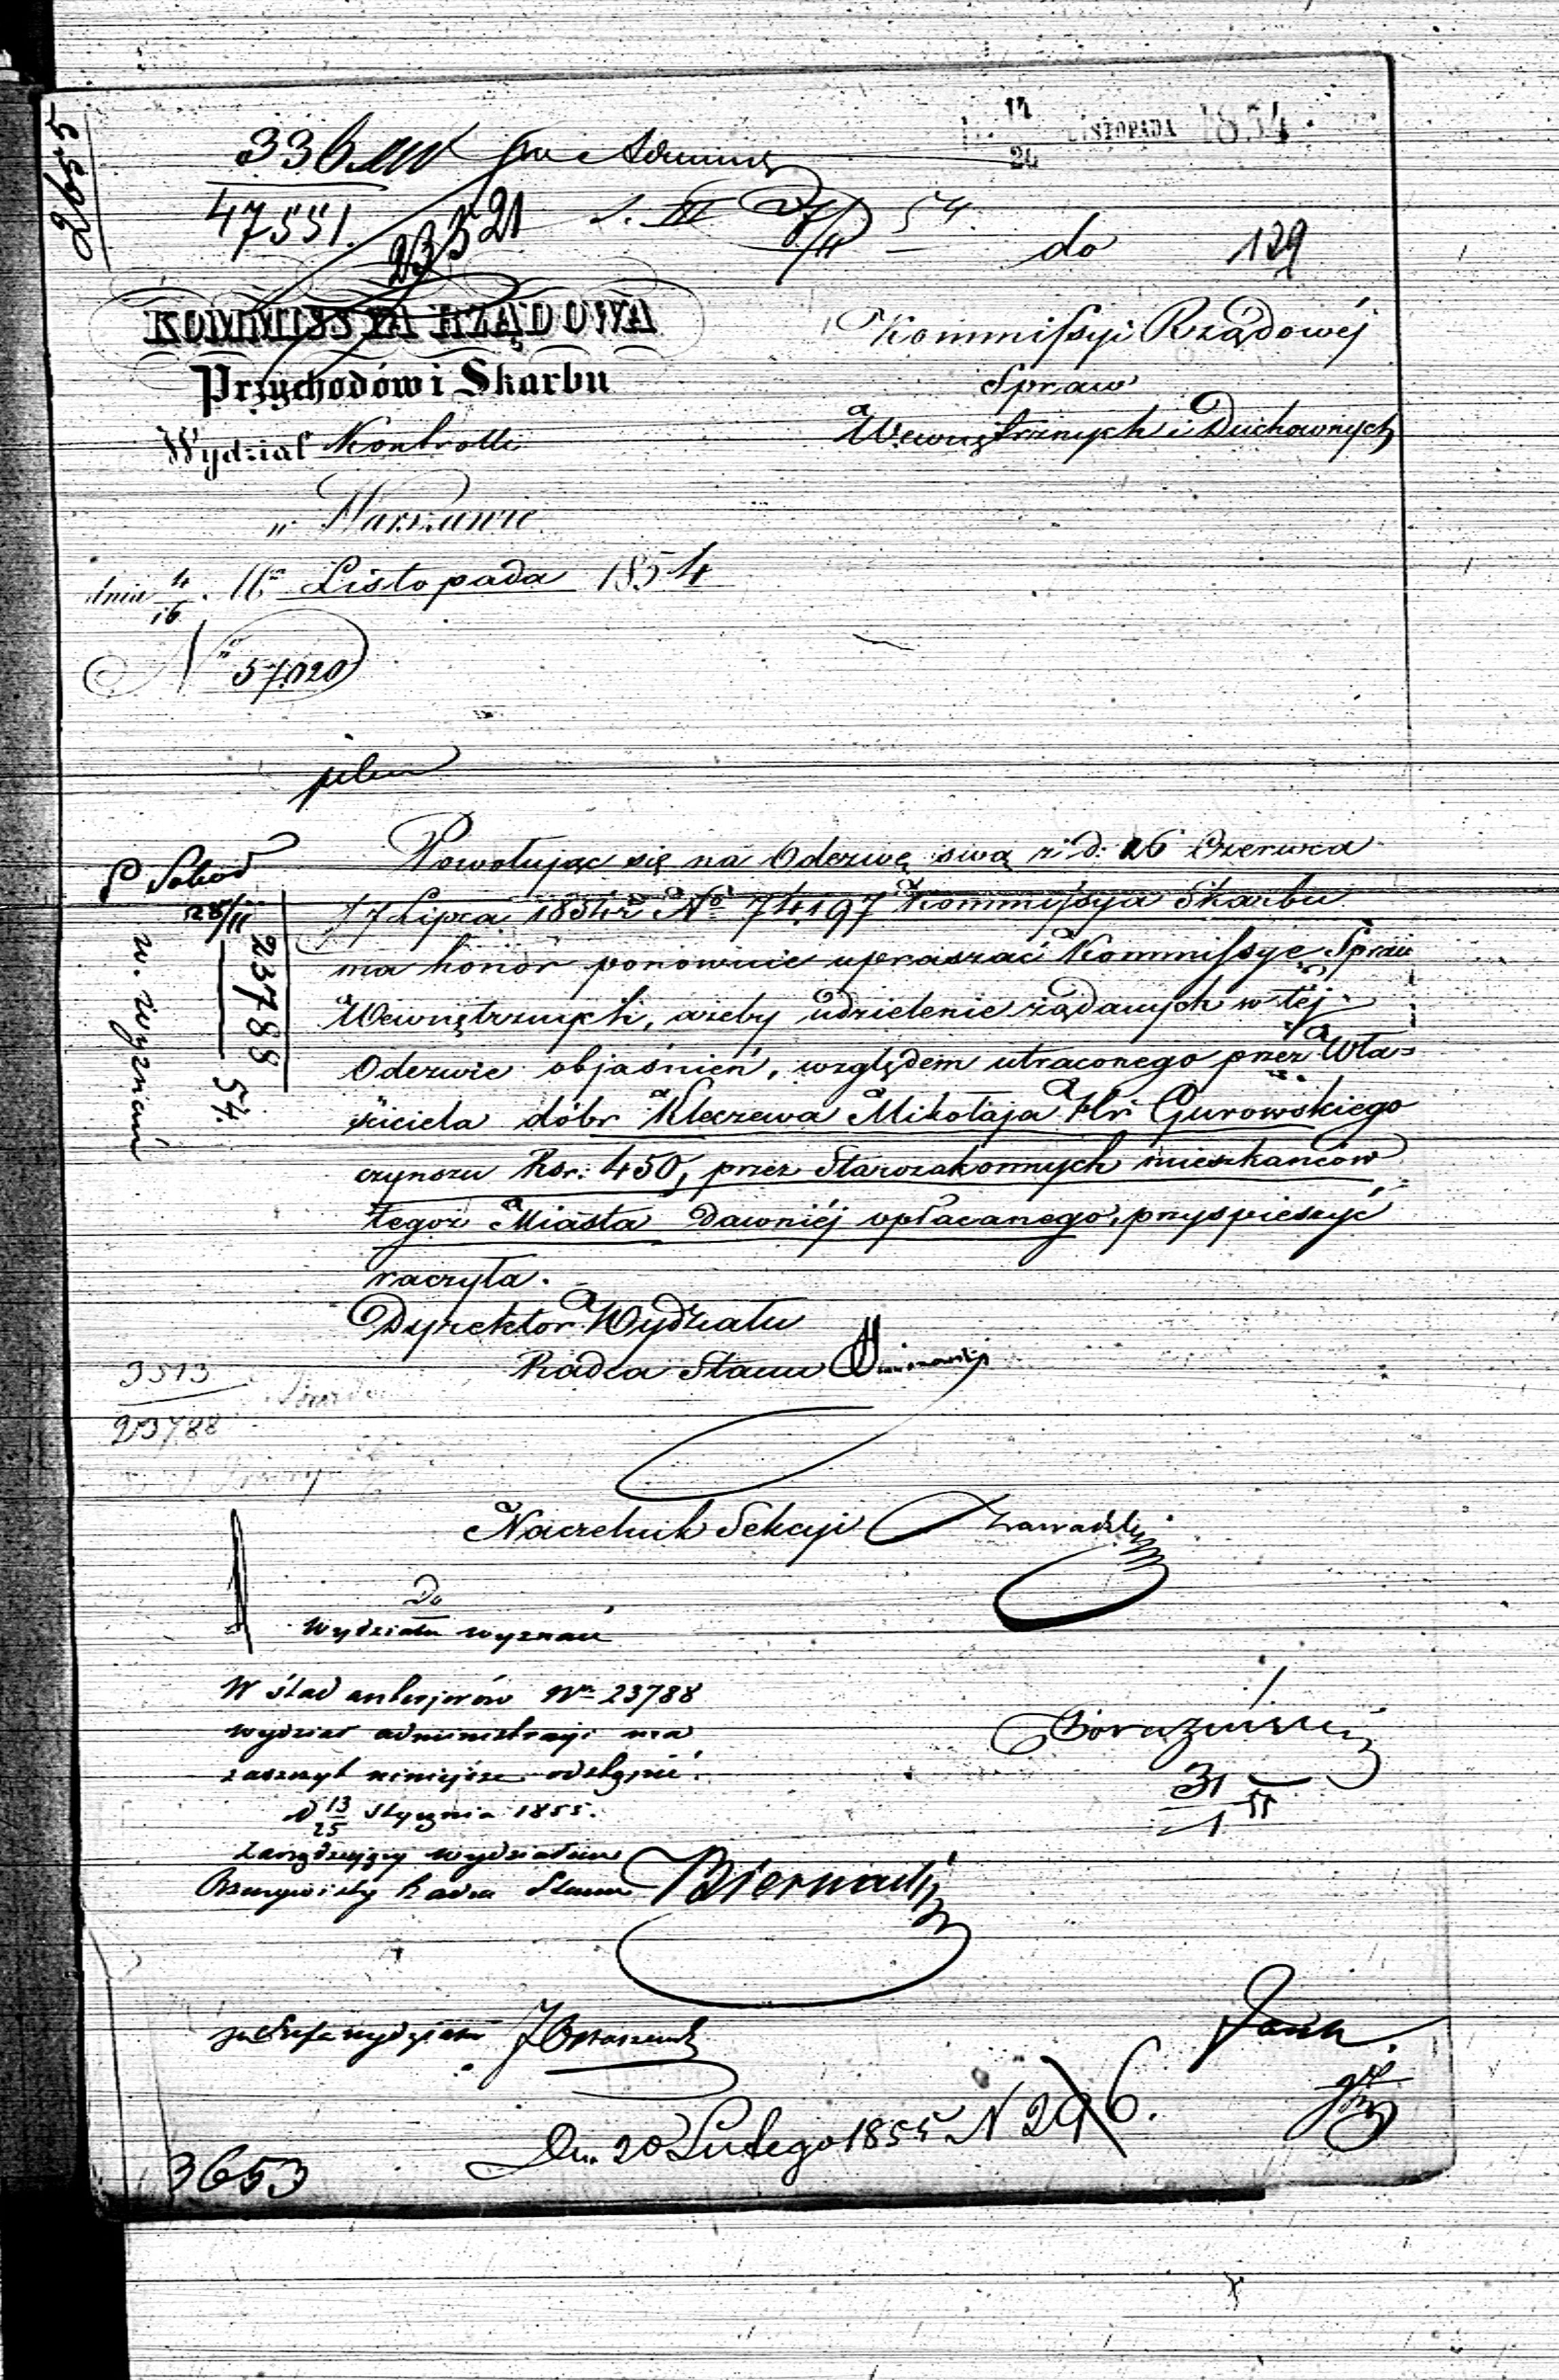 2655
17/26 LISTOPADA 1854
336
47551.
23521
do 129
KOMMISSYA RZĄDOWA
Przychodów i Skarbu
Wydział Kontrolli
w Warszawie
dnia 4/16 Listopada 1854
N 57,020
Kommissyi Rządowéj
Spraw
Wewnętrznych i Duchownych
pilna
28/11
23788
54.
w. wyznań
Powołując się na Odezwę swą z d. 26 Czerwca
/7 Lipca 1854 r. No 74,197 Kommissya Skarbu
ma honor ponownie upraszać Kommissye Spraw
Wewnętrznych, ażeby udzielenie żądanych w téj
Odezwie objaśnień, względem utraconego przez Wła-
ściciela dóbr Kleczewa Mikołaja Hr. Gurowskiego
czynszu Rsr: 450, przez Starozakonnych mieszkańców
tegoż Miasta dawniéj opłacanego, przyspieszyć
raczyła.
Dyrektor Wydziału
Radca Stanu
3513
23788
Naczelnik Sekcyi Zawadzki
Do
Wydziału wyznań
W ślad anterjorów Nr 23788
wydział administracji ma
zaszczyt niniejsze odstąpić.
d 13/25 Stycznia 1855.
Zarządzający wydziałem
Rzeczywisty Radca Stanu Biernacki
31/1 55
Szef wydziału
Dn. 20 Lutego 1855 N 296.
3653